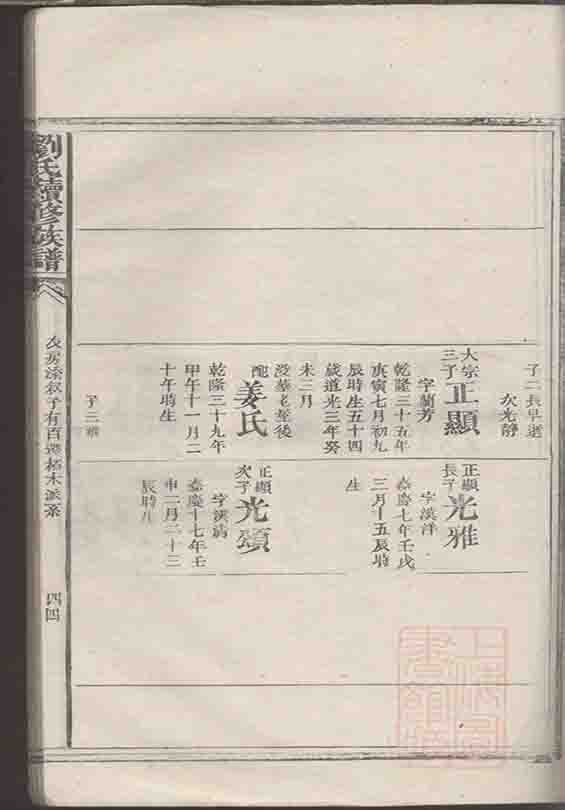 子二長早逝
次光靜
大宗
三子
正顯
字蘭芳
乾隆三十五年
庚寅七月初九
辰時生五十四
歲道光三年癸
未三月
沒葬老塋後
配姜氏
乾隆三十九年
甲午十一月二
十年時生
子二
正顯
長子
光雅
字漢洋
嘉慶七年壬戌
三月十五辰時
生
正顯
次子
光頌
字漢清
嘉慶十七年壬
申二月二十三
辰時生
劉氏續修族譜
友房
四四
上海圖
書館藏